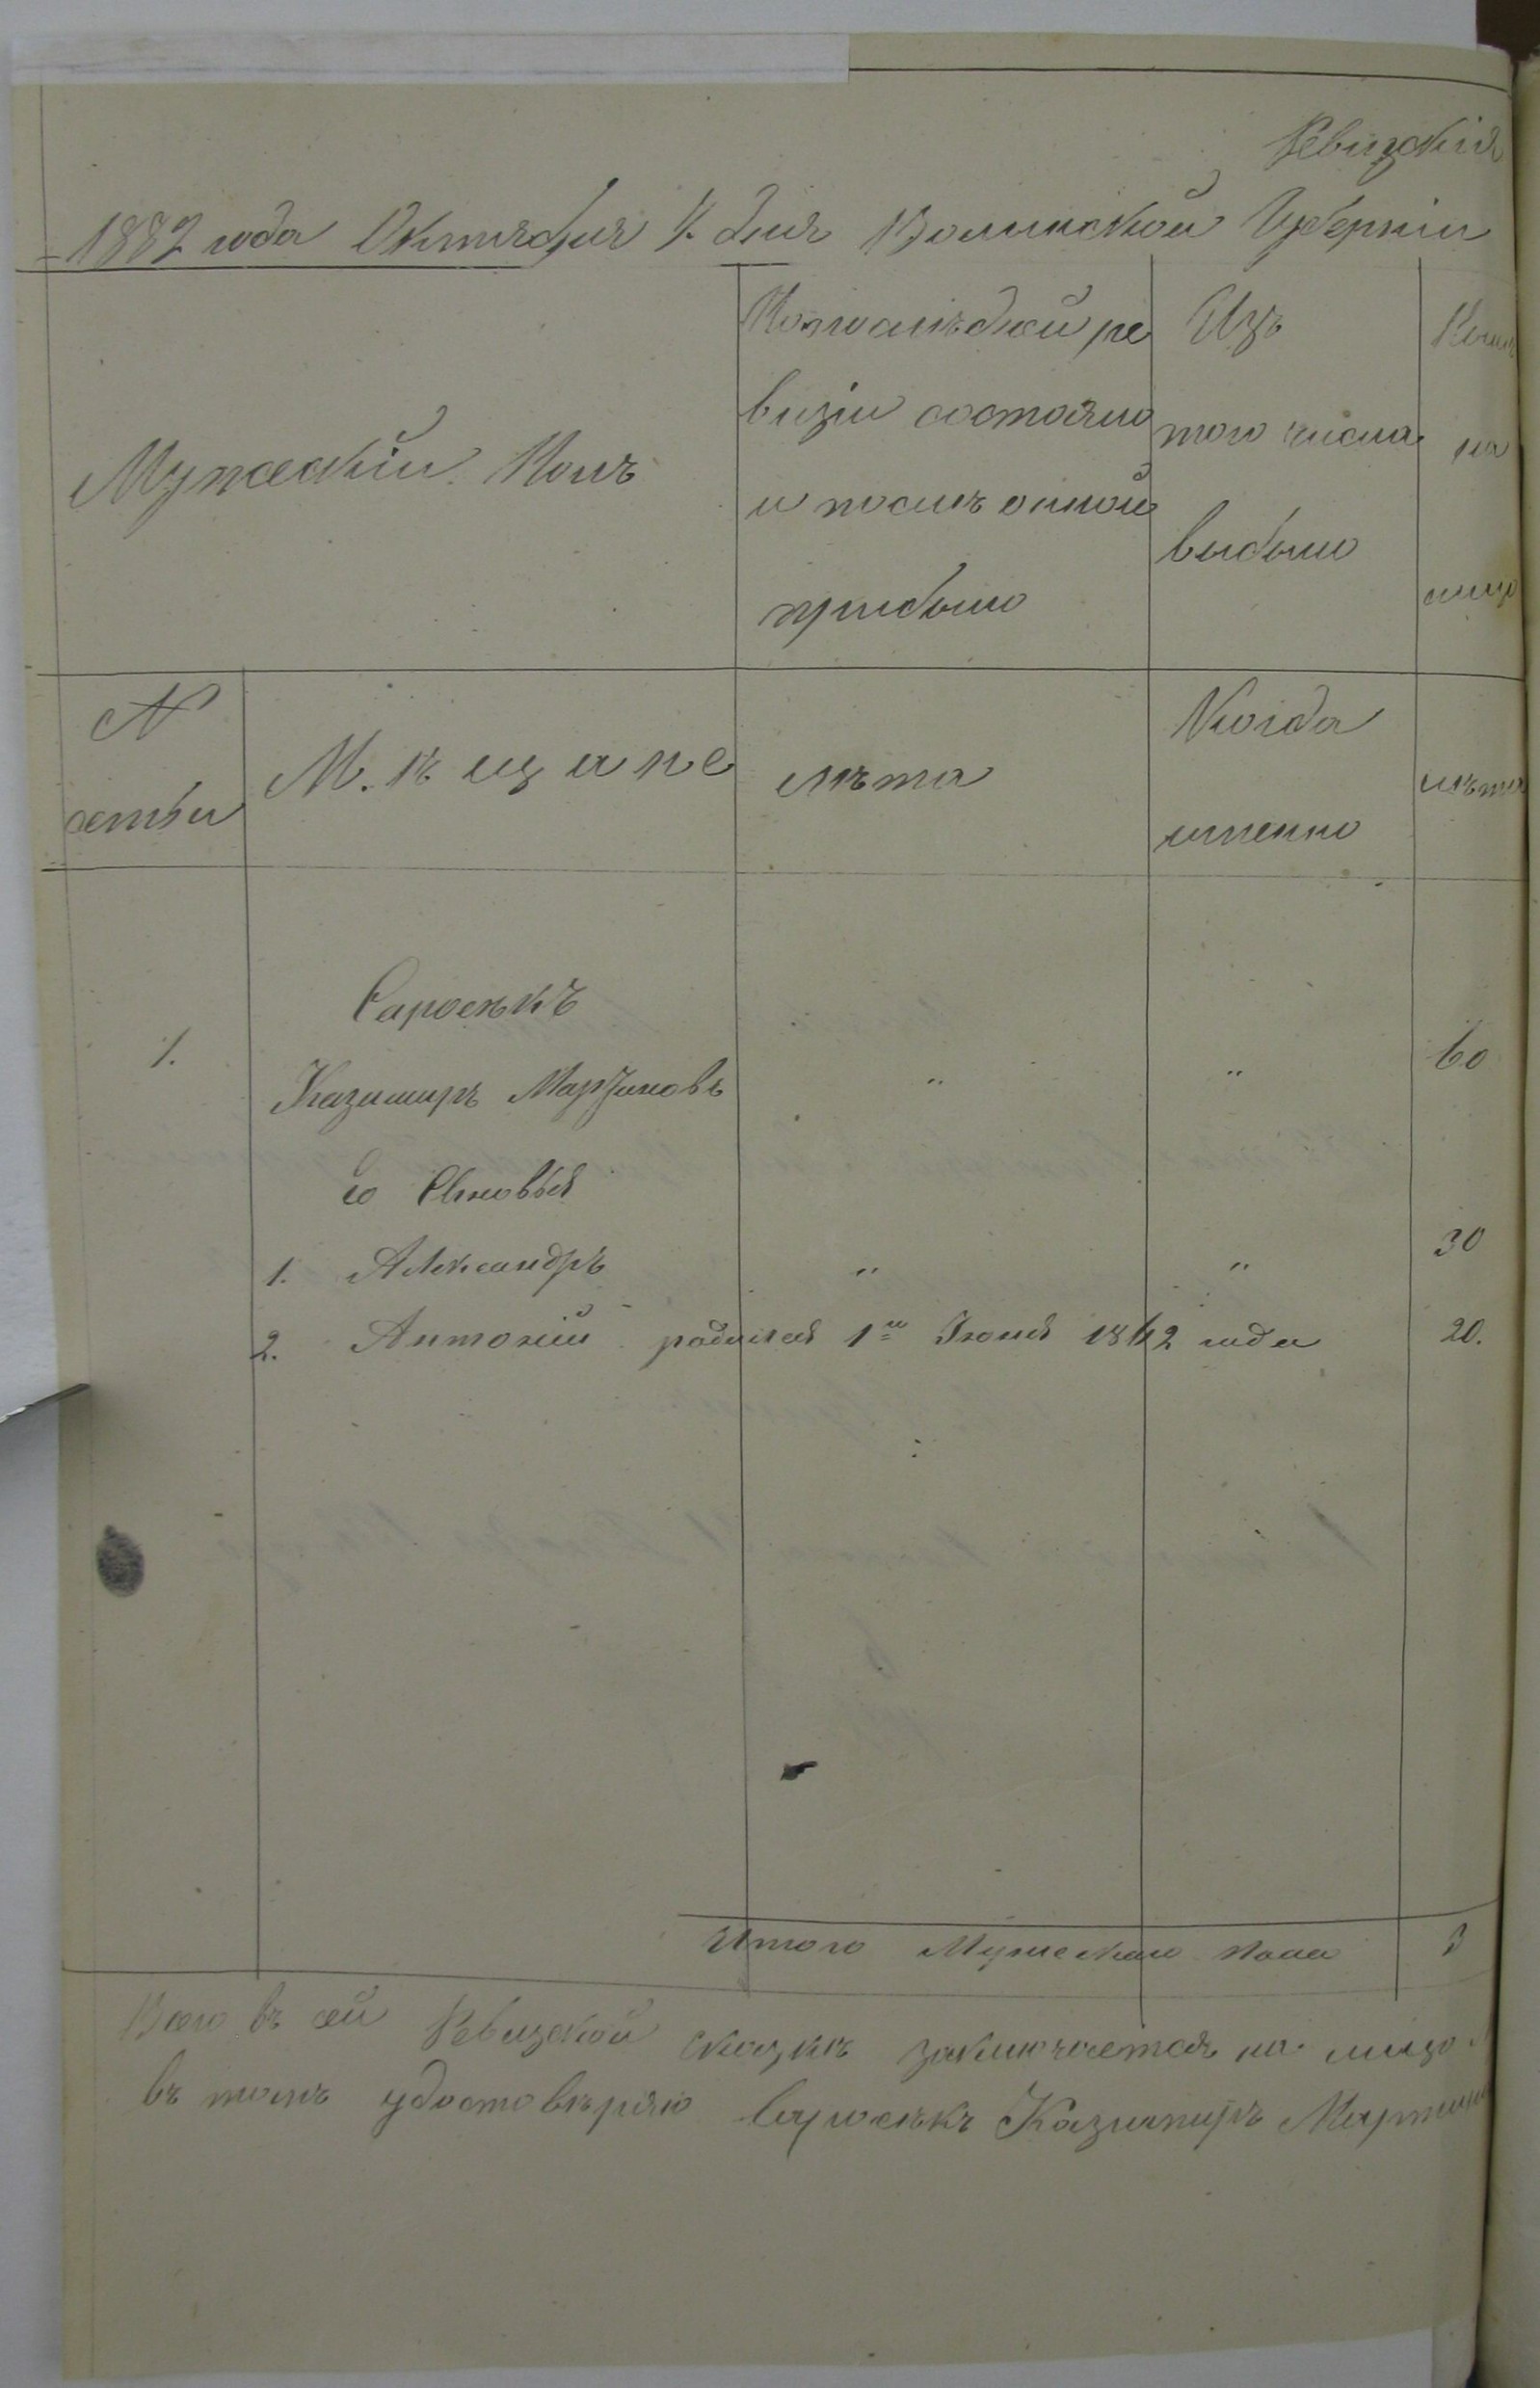 Ревизскія
1882 года Октября 4 дня Волынской Губерніи
Мужескій Полъ
По послѣдней ре
визіи состояло
и послѣ оной
прибыло
Изъ
того числа
выбыло
Нынѣ
на
лицо
№
семьи
М ѣ щ а н е
лѣта
Когда
именно
лѣта
1. Саросѣкъ
Казимиръ Мартиновъ " " 60
Его Сыновья
1. Александръ " " 30
2. Антоній родился 1го Іюня 1862 года 20.
Итого Мужескаго пола 3
Всего въ сей Ревизской сказкѣ заключается на лицо
въ томъ удостовѣряю Саросѣкъ Казимиръ